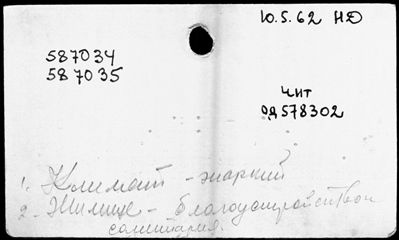 10.5.62 НД
587034
587035
ЧИТ
ОД 578302
1. Климат - жаркий
2. Жилище - благоустройство
санитария.